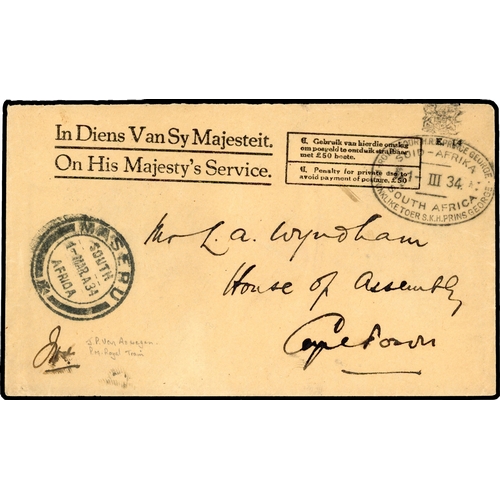 In Diens Van Sy Majesteit.
On His Majesty's Service.
¶. Gebruik van hierdie omslag
om posgeld te ontduik strafbaar
met £50 boete.
¶. Penalty for private use to
avoid payment of postage, £50
H.R.H. PRINCE GEORGE
SUID-AFRIKA
1- III 34
SOUTH AFRICA
TOER S.K.H. PRINS GEORGE
MASERU
SOUTH
1-MAR.A34
AFRICA
Mr L. A. Wyndham
House of Assembly
Cape Town
P.M. Royal Train